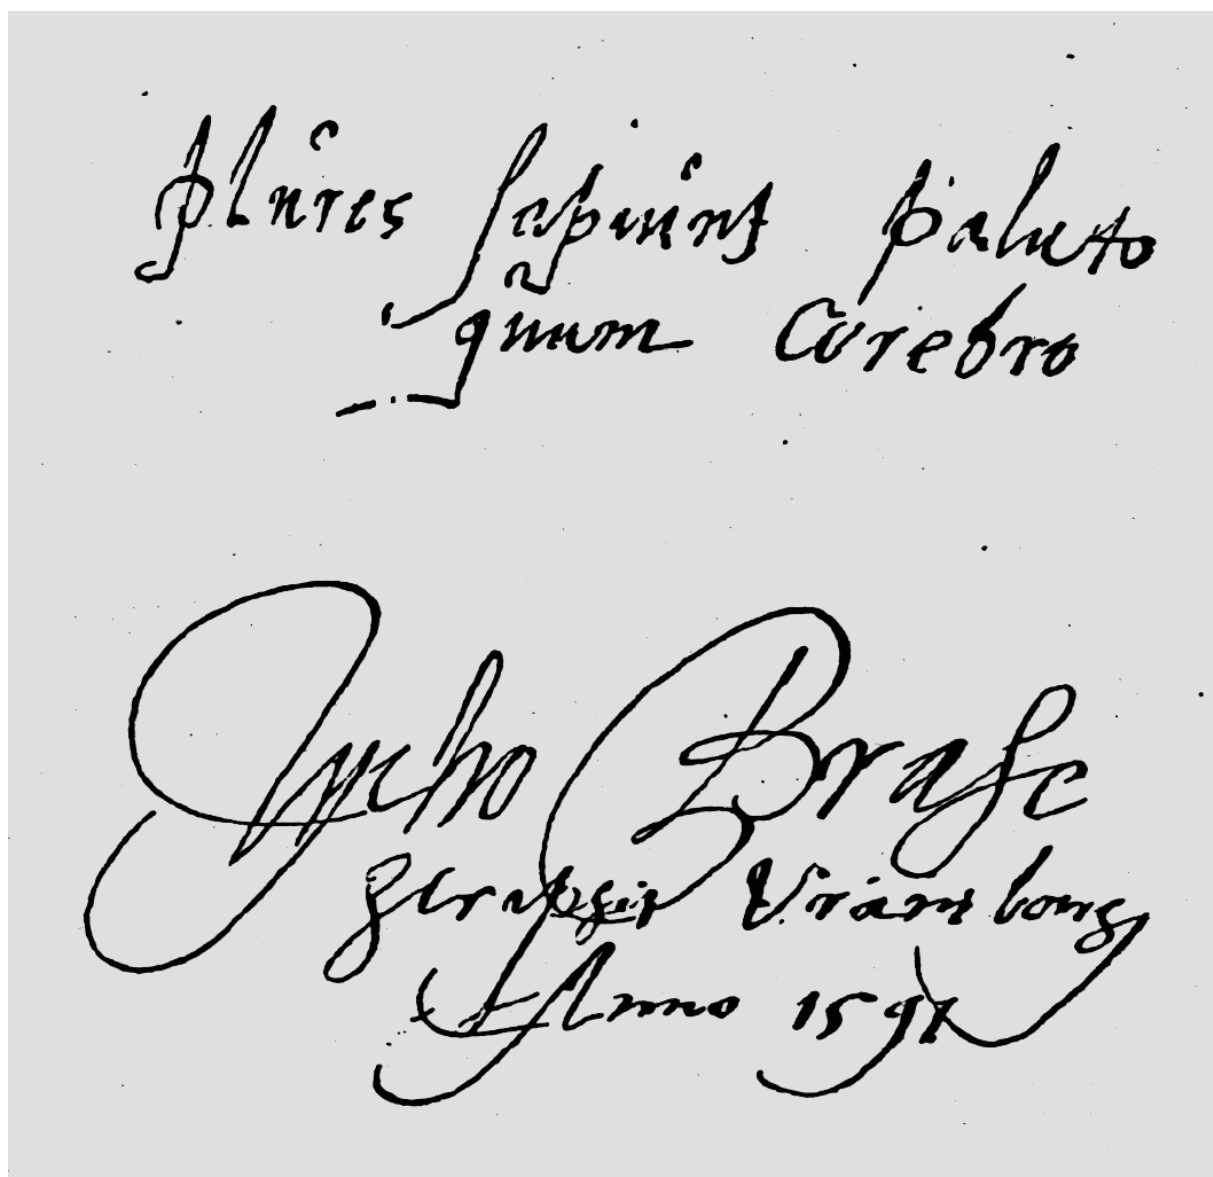 plures sapiunt palato
quam Cerebro
Tycho Brahe
Uraniburg
Anno 1591